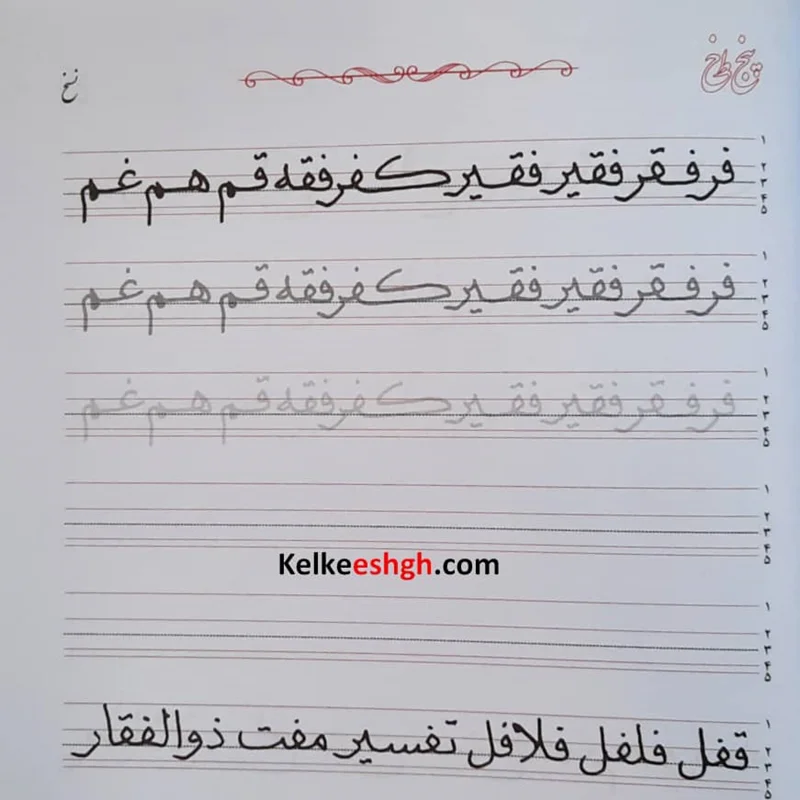 نخ
فر فقر فقیر فقیر کفر فقه قم هم غم
۱
۲
۳
۴
۵
فر فقر فقیر فقیر کفر فقه قم هم غم
۱
۲
۳
۴
۵
فر فقر فقیر فقیر کفر فقه قم هم غم
۱
۲
۳
۴
۵
۱
۲
۳
۴
۵
Kelkeeshgh.com
۱
۲
۳
۴
۵
قفل فلفل فلافل تفسیر مفت ذوالفقار
۱
۲
۳
۴
۵